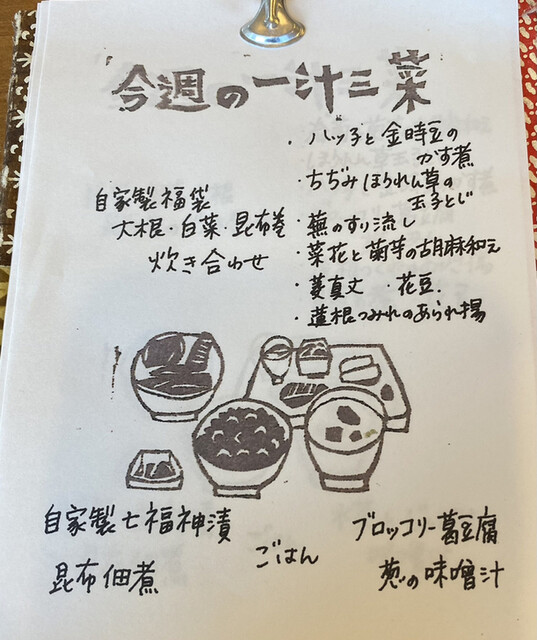 今週の一汁三菜
・八ッ子と金時豆の
かす煮
・ちぢみほうれん草の
玉子とじ
・蕪のすり流し
・菜花と菊芋の胡麻和え
・菱真丈 ・花豆.
・蓮根つみれのあられ揚
自家製福袋
大根・白菜・昆布巻
炊き合わせ
自家製七福神漬
昆布佃煮
ごはん
ブロッコリー葛豆腐
葱の味噌汁